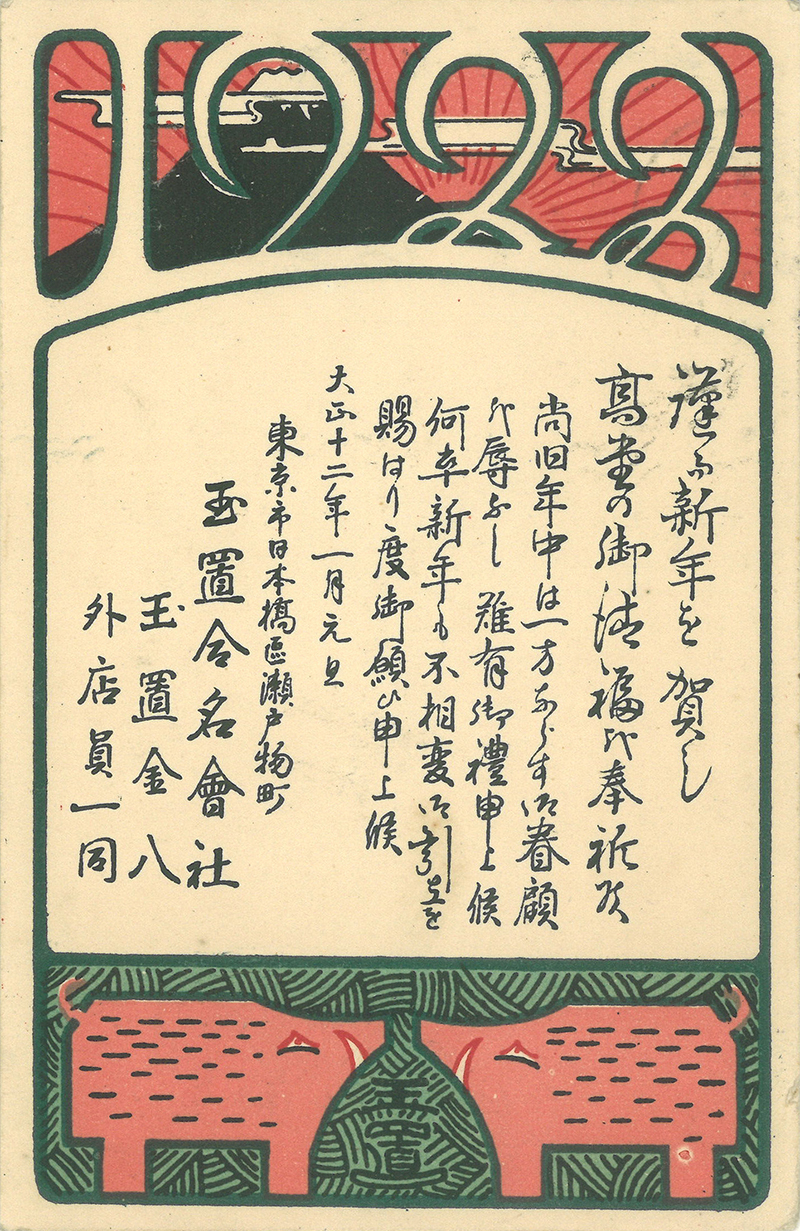 1923
謹而新年を賀し
高堂の御清福を奉祈候
尚旧年中は一方ならす御眷顧
を辱ふし難有御禮申上候
何卒新年も不相変御引立を
賜はり度御願ひ申上候
大正十二年一月元旦
東京市日本橋區瀬戸物町
玉置合名會社
玉置金八
外店員一同
玉置